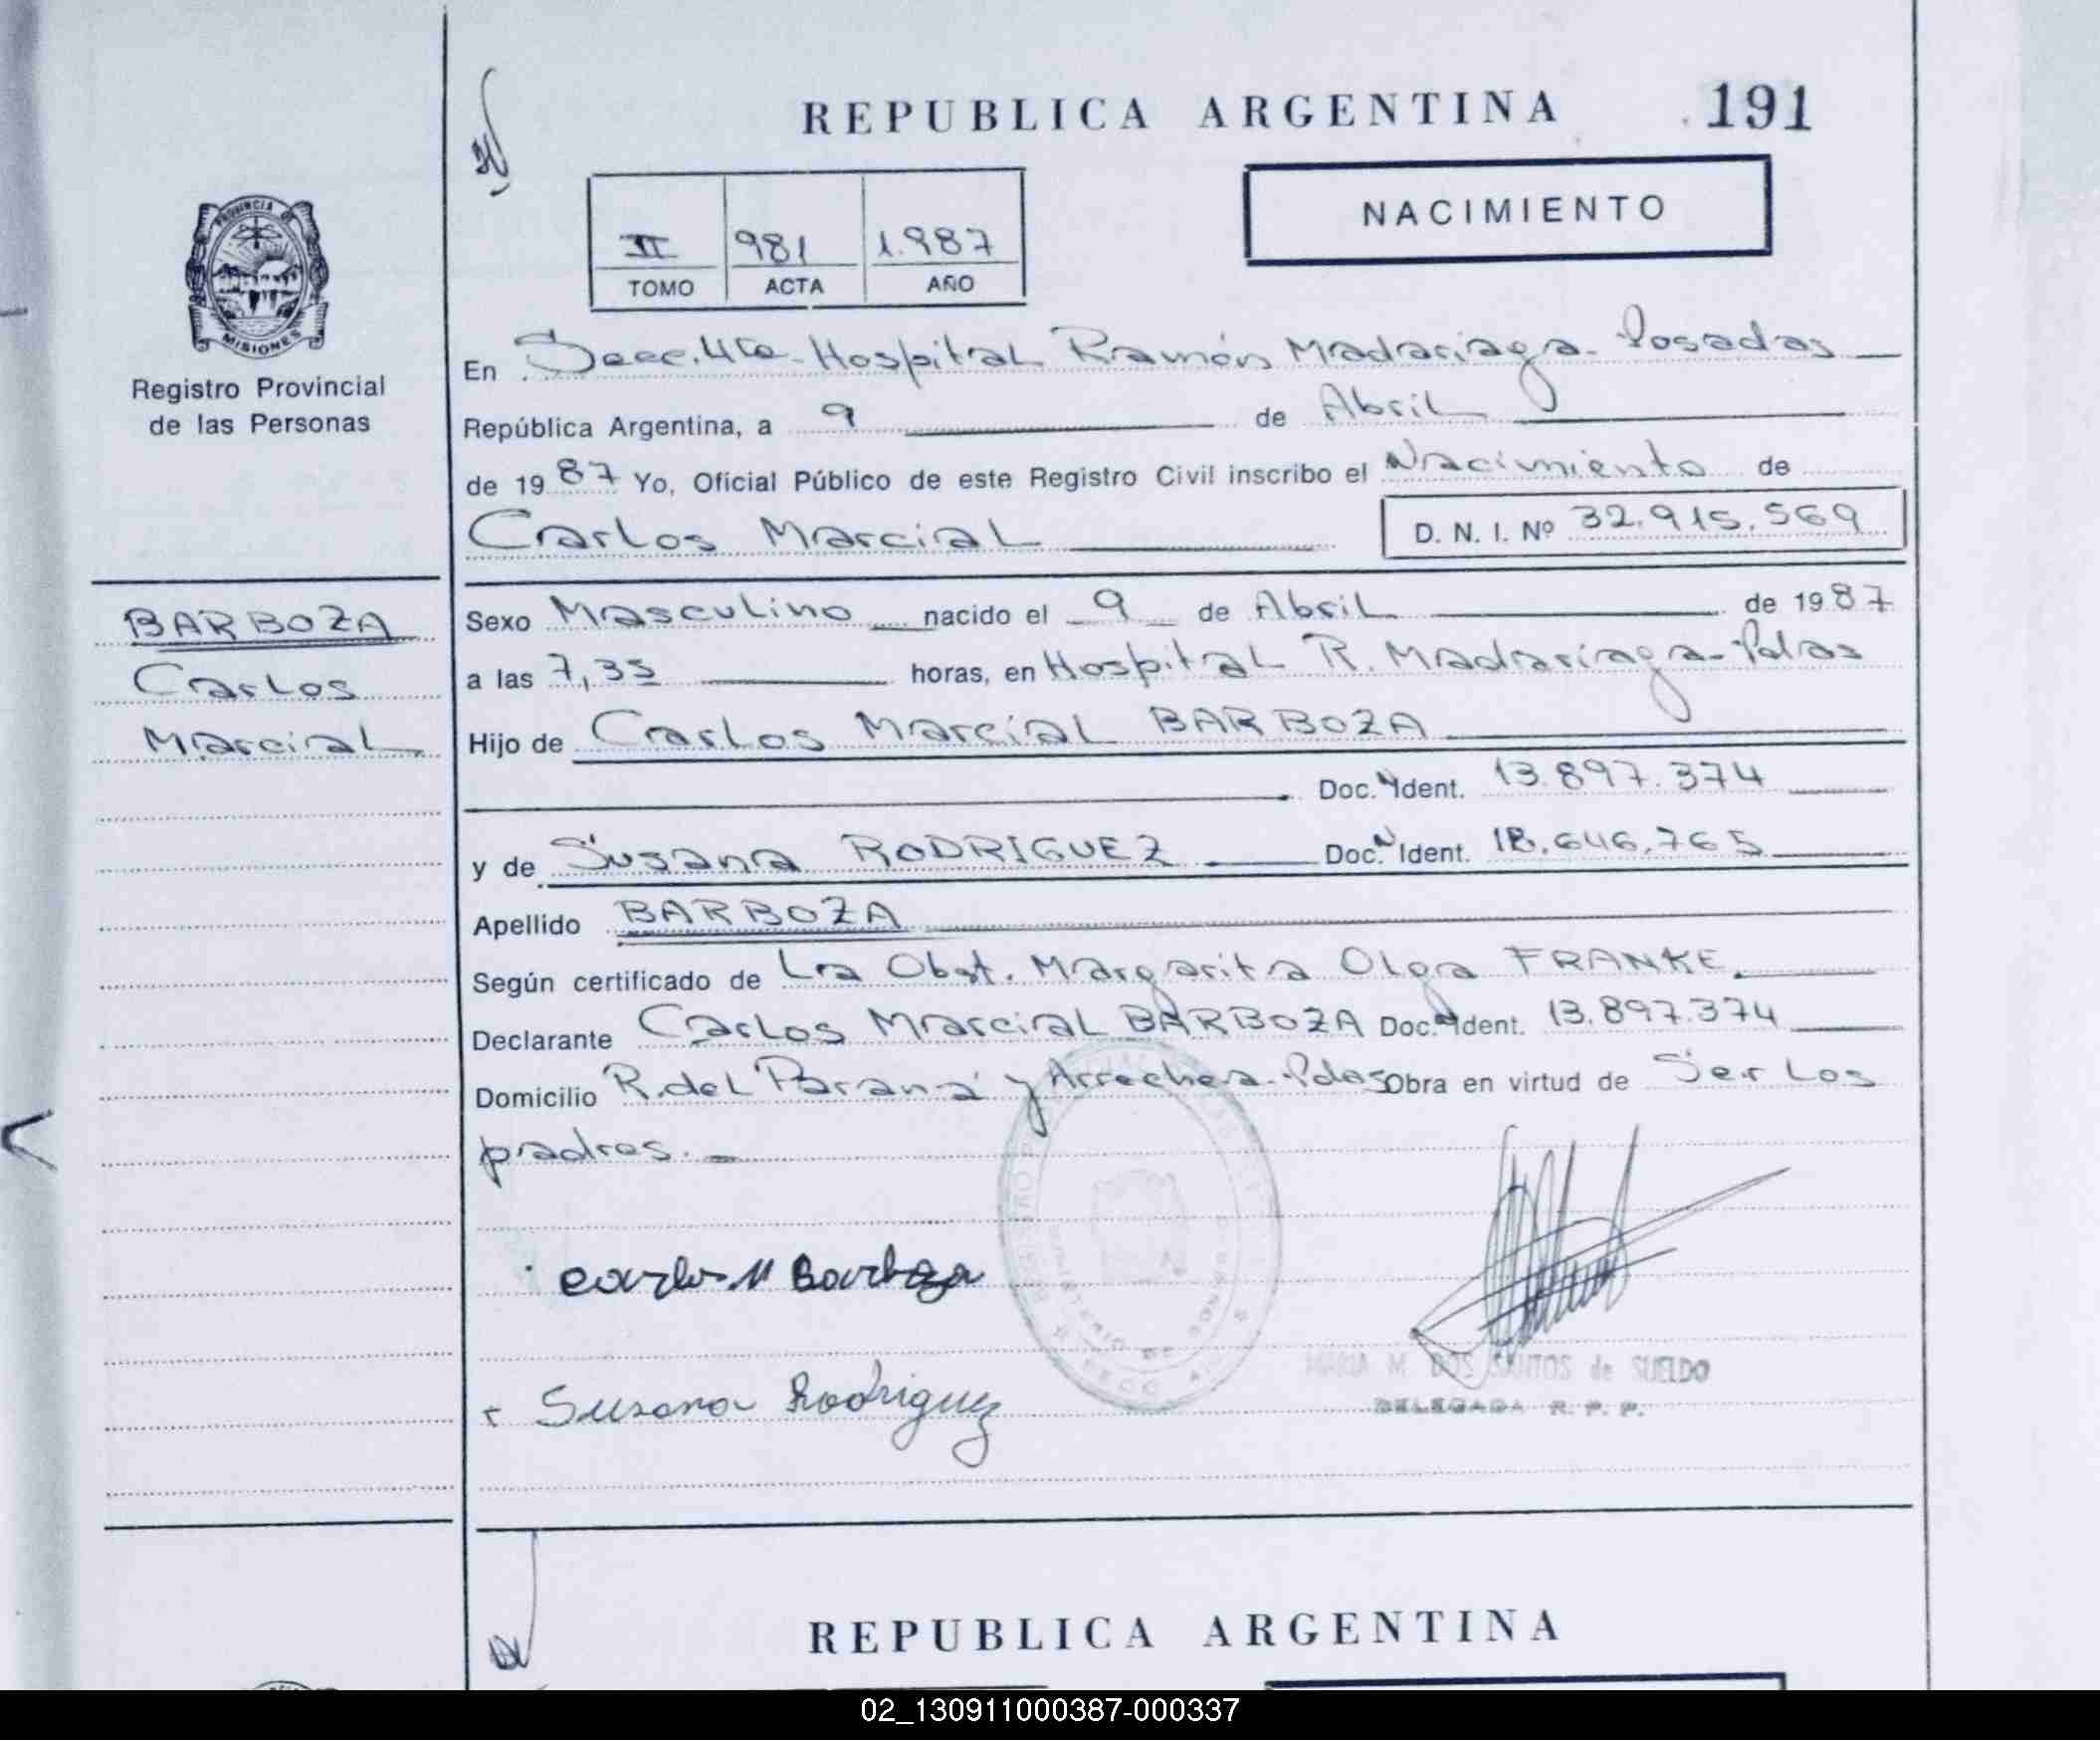 REPUBLICA ARGENTINA 191
NACIMIENTO
II 981 1.987
TOMO ACTA AÑO
PROVINCIA DE
MISIONES
Registro Provincial
de las Personas
En Secc. 4ta - Hospital Ramón Madariaga - Posadas
República Argentina, a 9 de Abril
de 1987 Yo, Oficial Público de este Registro Civil inscribo el Nacimiento de
Carlos Marcial D. N. I. Nº 32.915.569
BARBOZA
Carlos
Marcial
Sexo Masculino nacido el 9 de Abril de 1987
a las 7,35 horas, en Hospital R. Madariaga - Pdas
Hijo de Carlos Marcial BARBOZA
Doc. Ident. 13.897.374
y de Susana RODRIGUEZ Doc. Ident. 18.646.765
Apellido BARBOZA
Según certificado de La Obst. Margarita Olga FRANKE.
Declarante Carlos Marcial BARBOZA Doc. Ident. 13.897.374
Domicilio R. del Paraná y Arrechea - Pdas Obra en virtud de Ser los
padres.
Carlos M Barboza
M DOS SANTOS de SUELDO
DELEGADA R. P. P.
Susana Rodriguez
REPUBLICA ARGENTINA
02_130911000387-000337